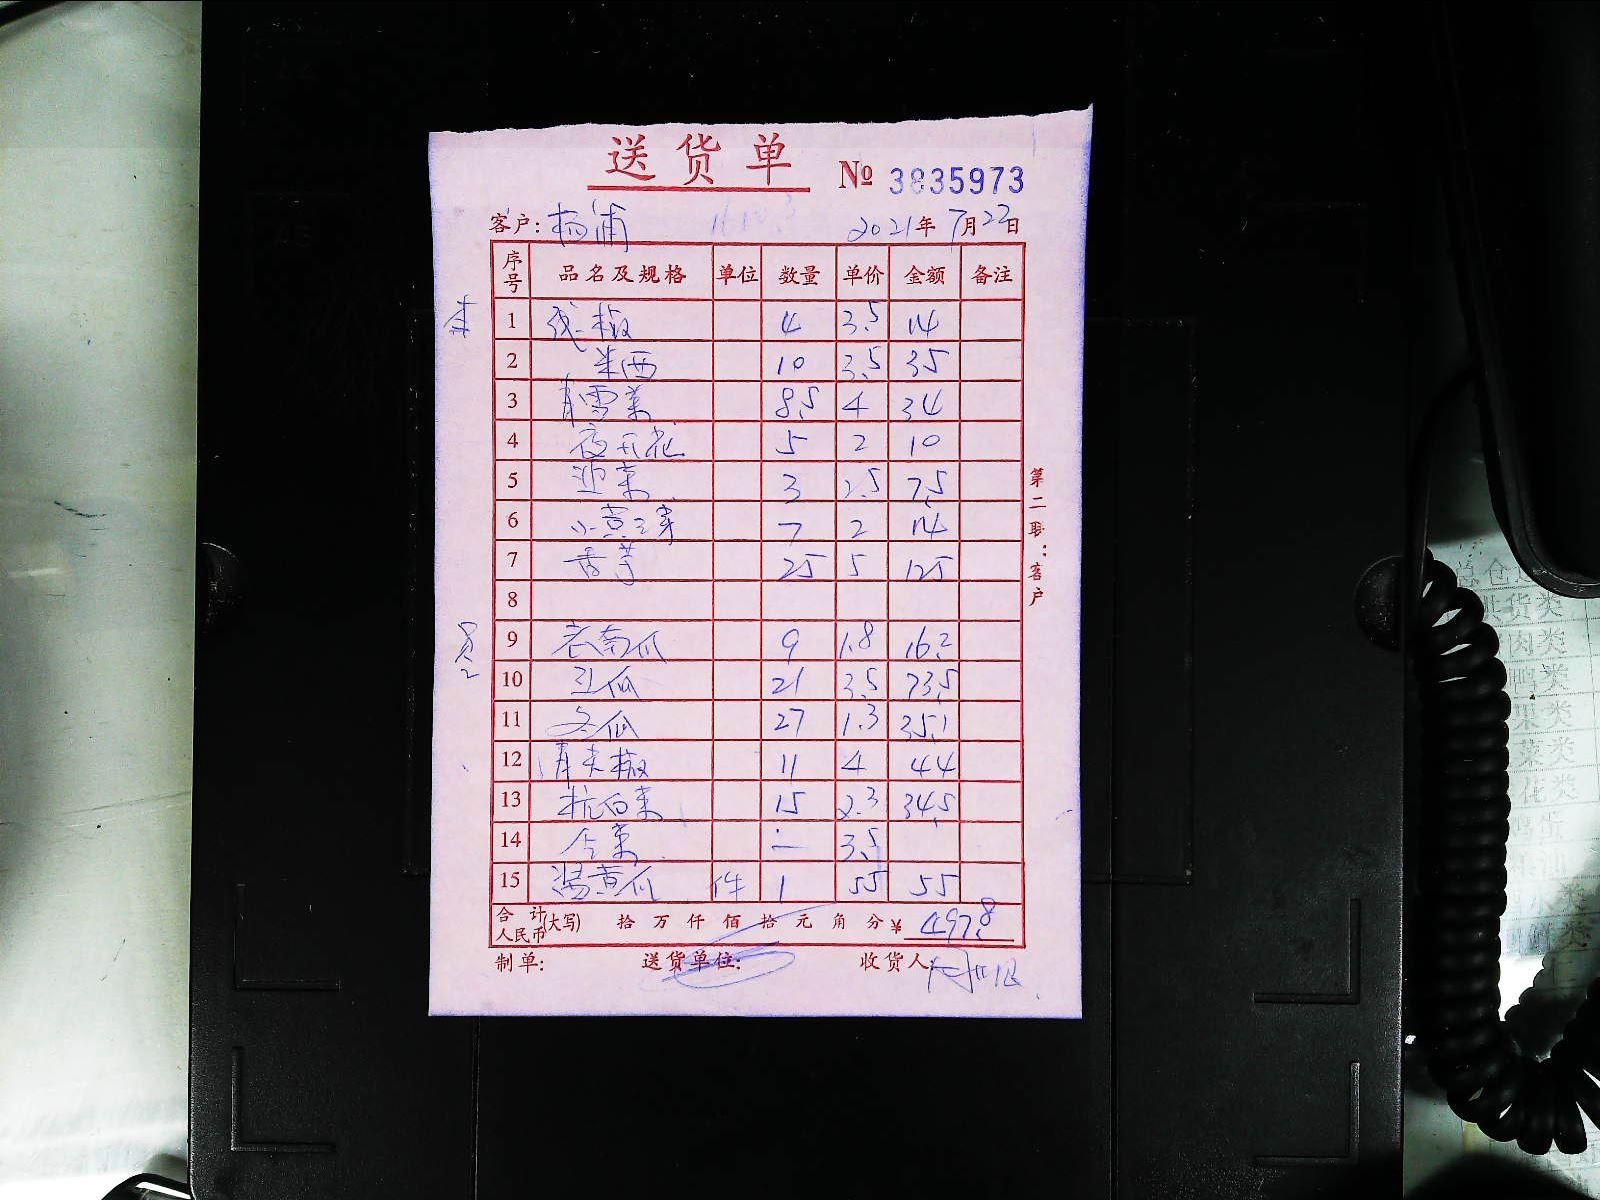 送货单 № 3835973
客户: 杨浦 2021年7月22日
序号 品名及规格 单位 数量 单价 金额 备注
1 线椒 4 3.5 14
2 米西 10 3.5 35
3 8.5 4 34
4 夜开花 5 2 10
5 韭菜 3 2.5 7.5
6 小黄芽 7 2 14
7 香芋 25 5 125
8
9 老南瓜 9 1.8 16.2
10 瓜 21 3.5 73.5
11 冬瓜 27 1.3 35.1
12 青尖椒 11 4 44
13 杭白菜 15 2.3 34.5
14 3.5
15 黄瓜 件 1 55 55
合计人民币(大写) 拾 万 仟 佰 拾 元 角 分 ¥ 497.8
制单: 送货单位: 收货人:
第二联:客户
总仓
供货类
肉类
鸭类
果类
菜类
花类
鸡蛋
水类